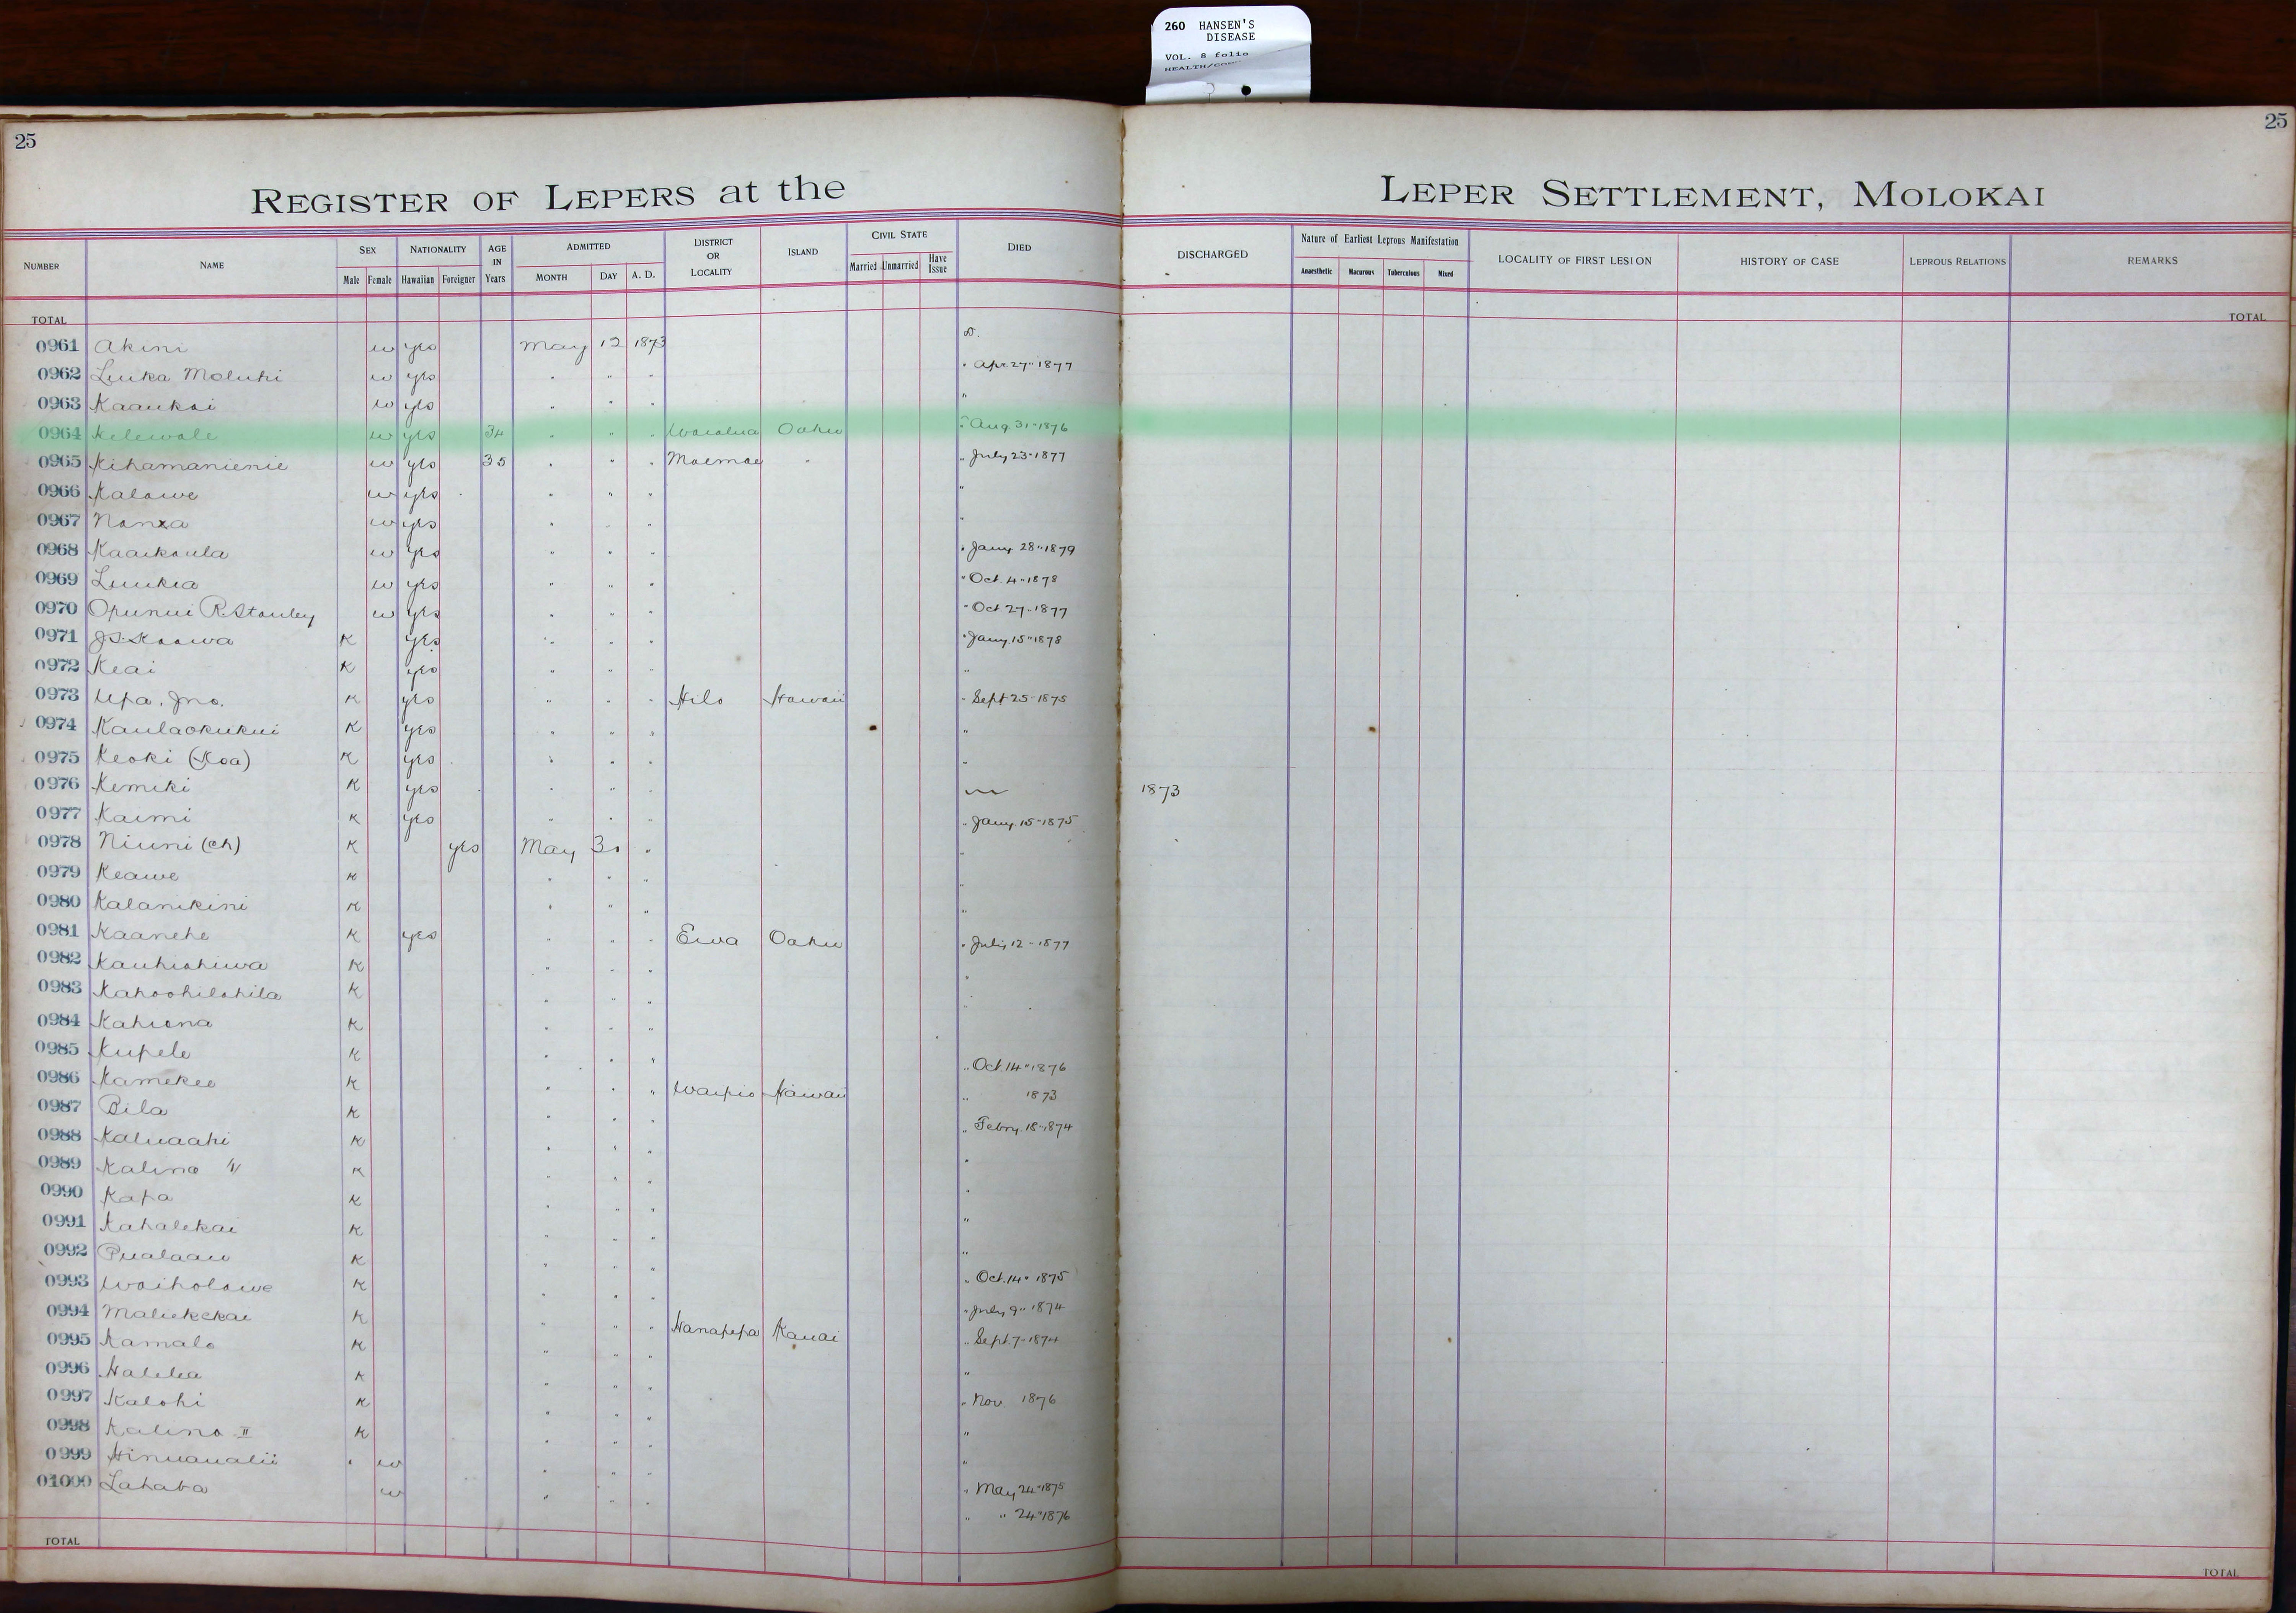 260 HANSEN'S
DISEASE
VOL. 8 folio
25
25
REGISTER OF LEPERS at the
LEPER SETTLEMENT, MOLOKAI
NUMBER NAME SEX Male Female NATIONALITY Hawaiian Foreigner AGE IN Years ADMITTED MONTH DAY A. D. DISTRICT OR LOCALITY ISLAND CIVIL STATE Married Unmarried Have Issue DIED DISCHARGED Nature of Earliest Leprous Manifestation Anaesthetic Macurous Tuberculous Mixed LOCALITY OF FIRST LESION HISTORY OF CASE LEPROUS RELATIONS REMARKS
TOTAL TOTAL
0961 Akini w yes May 12 1873 D.
0962 Luika Moluhi w yes " " " " Apr. 27" 1877
0963 Kaaukai w yes " " " "
0964 Kelewale w yes 34 " " " Waialua Oahu " Aug. 31" 1876
0965 Kihamanienie w yes 35 " " " " " July 23" 1877
0966 Kalawe w yes " " " "
0967 w yes " " " "
0968 Kaaikaula w yes " " " " Jany. 28" 1879
0969 Luukia w yes " " " " Oct. 4" 1878
0970 Opunui R. Stanley w yes " " " " Oct 27" 1877
0971 K yes " " " " Jany. 15" 1878
0972 Keai K yes " " " "
0973 Upa, Jno. K yes " " " Hilo Hawaii " Sept 25" 1875
0974 Kaulaokukui K yes " " " "
0975 Keoki (Koa) K yes " " " "
0976 Kemiki K yes " " " 1873
0977 Kaimi K yes " " " " Jany. 15" 1875
0978 Niuni (ch) K yes May 30 " "
0979 Keawe K " " " "
0980 Kalanikini K " " " "
0981 Kaanehe K yes " " " Ewa Oahu " July 12" 1877
0982 Kauhiohiwa K " " " "
0983 Kahoohilohila K " " " "
0984 Kahiona K " " "
0985 Kupele K " " " " Oct. 14" 1876
0986 Kamekeo K " " " Waipio Hawaii " 1873
0987 Bila K " " " " Febry. 18" 1874
0988 Kaluaahi K " " " "
0989 Kalino K " " " "
0990 Kapa K " " " "
0991 Kahalekai K " " " "
0992 Pualaau K " " " " Oct. 14" 1875
0993 Waiholowe K " " " " July 9" 1874
0994 Maliekekai K " " " Hanapepa Kauai " Sept. 7" 1874
0995 Kamalo K " " " "
0996 K " " " " Nov. 1876
0997 Kalohi K " " " "
0998 Kalino II K " " " "
0999 Hinuaualii w " " " " May 24" 1875
01000 Lahaba w " " " " " 24" 1876
TOTAL TOTAL